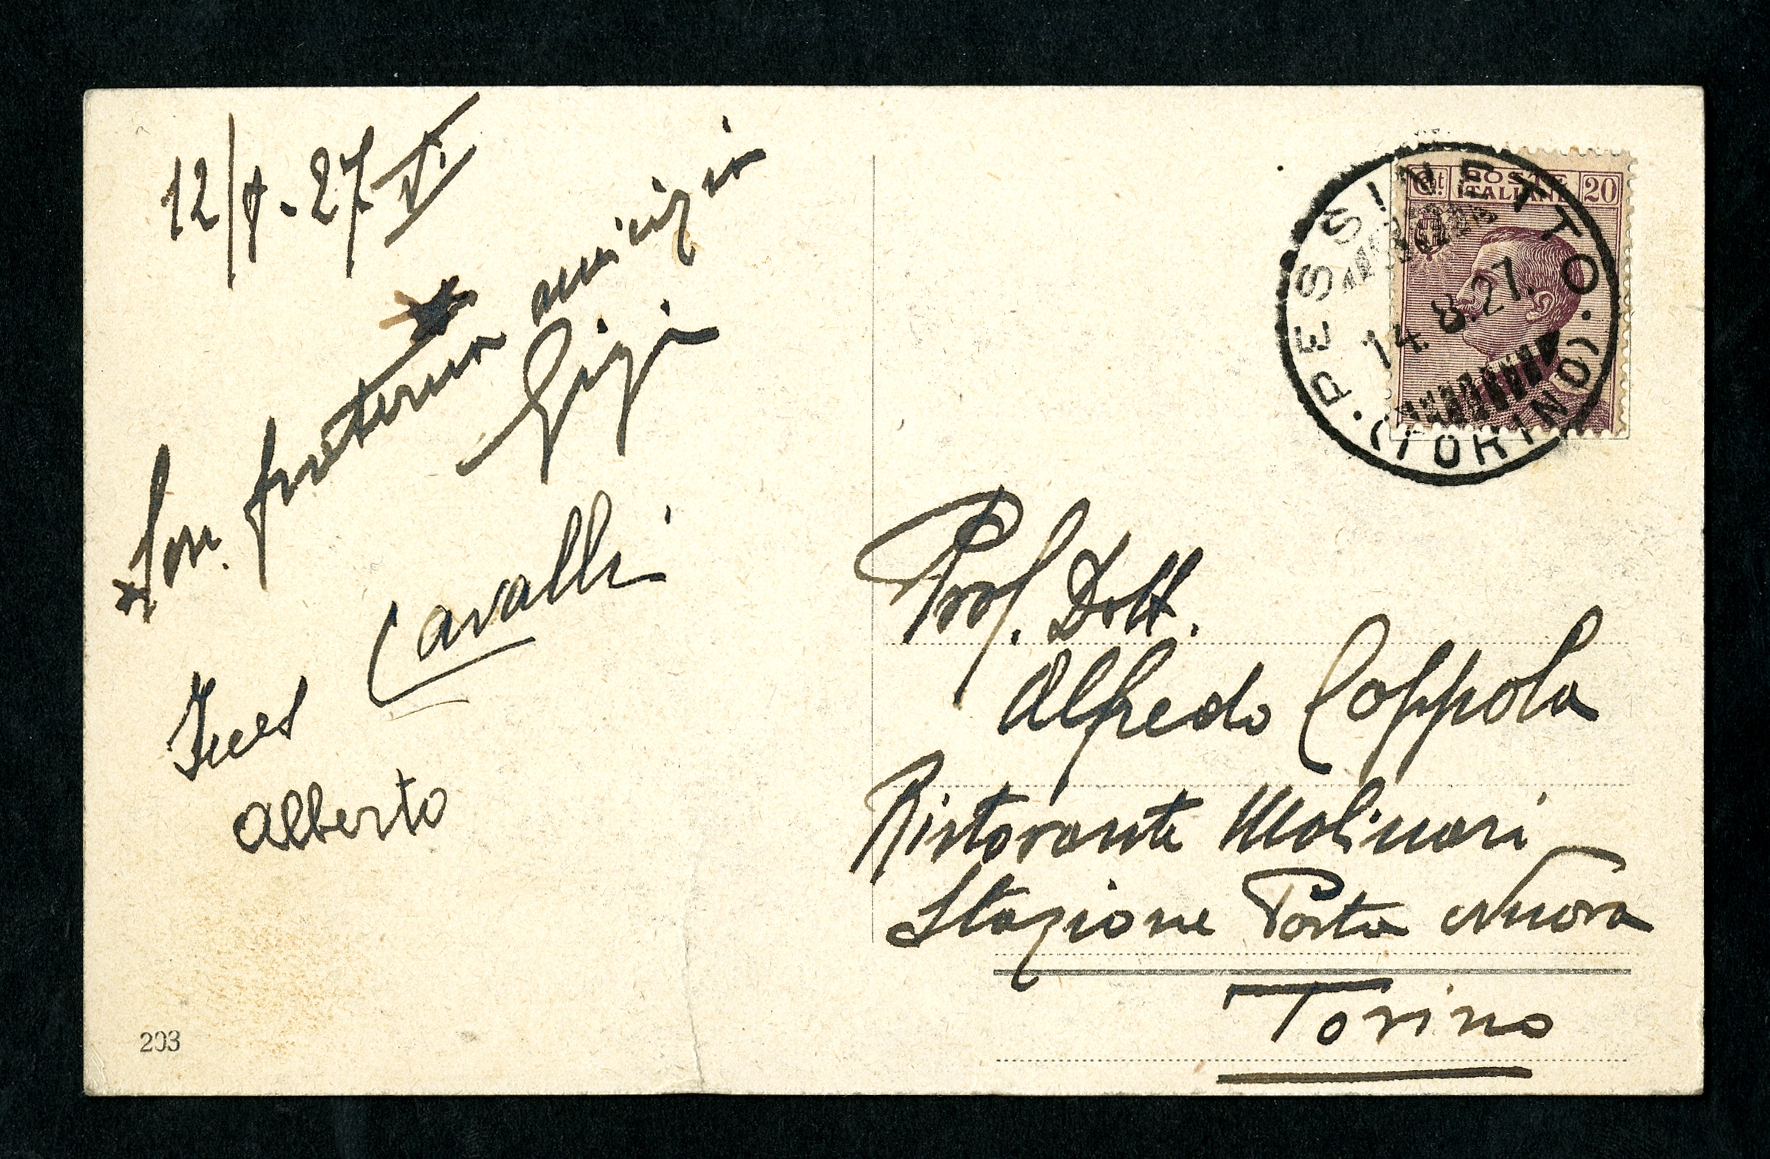 12/8-27 V.
Con fraterna amicizia
Gigi
Cavalli
Ines
Alberto
203
POSTE
ITALIANE
20
PESSINETTO
14.8.27.
(TORINO)
Prof. Dott.
Alfredo Coppola
Ristorante Molinari
Stazione Porta Nuova
Torino